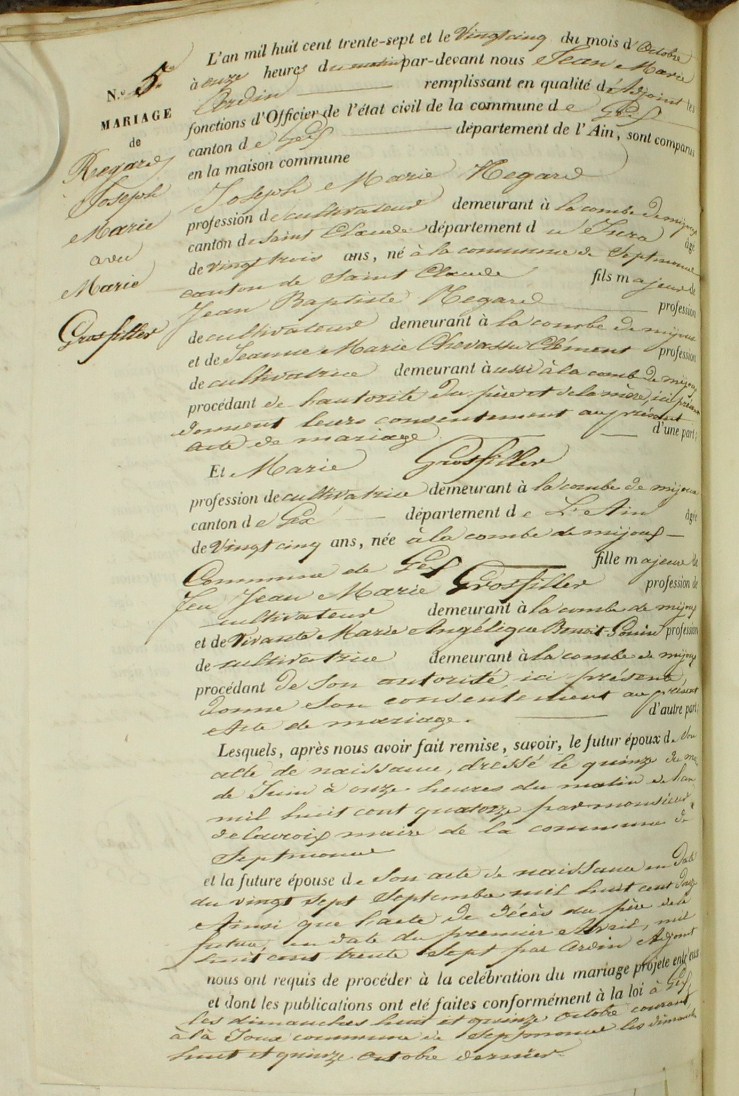 N.º 5.
MARIAGE
de
Regard
Joseph
Marie
avec
Marie
Grosfiller
L'an mil huit cent trente-sept et le Vingtcinq du mois d'Octobre
à onze heures du matin par-devant nous Jean Marie
Ardin remplissant en qualité d'Adjoint les
fonctions d'Officier de l'état civil de la commune de Gex
canton de Gex département de l'Ain, sont comparus
en la maison commune
Joseph Marie Regard
profession de cultivateur demeurant à la combe de mijoux
canton de Saint Claude département du Jura âgé
de vingt trois ans, né à la commune de Septmoncel
canton de Saint Claude fils majeur de
Jean Baptiste Regard profession
de cultivateur demeurant à la combe de mijoux
et de Jeanne Marie Chevassu Clément profession
de cultivatrice demeurant à aussi à la combe de mijoux
procédant de l'autorité du père et de la mère, ici présents
donnent leurs consentement au présent
acte de mariage d'une part;
Et Marie Grosfiller
profession de cultivatrice demeurant à la combe de mijoux
canton de Gex département de L'Ain âgée
de Vingt cinq ans, née à la combe de mijoux
Commune de Gex fille majeure de
feu Jean Marie Grosfiller profession de
cultivateur demeurant à la combe de mijoux
et de Vivante Marie Angélique Benoit Gonin profession
de cultivatrice demeurant à la combe de mijoux
procédant de son autorité ici présente,
donne son consentement au présent
Acte de mariage. d'autre part;
Lesquels, après nous avoir fait remise, savoir, le futur époux de Son
acte de naissance, dressé le quinze du mois
de Juin à onze heures du matin de l'an
mil huit cent quatorze par monsieur
delacroix maire de la commune de
Septmoncel
et la future épouse de Son acte de naissance en date
du vingt sept Septembre mil huit cent douze
Ainsi que l'acte de décès du père de la
future, en date du premier Avril, mil
huit cent trente Sept par Ardin Adjoint
nous ont requis de procéder à la célébration du mariage projeté entr'eux
et dont les publications ont été faites conformément à la loi à Gex
les dimanches huit et quinze Octobre courant
à la Joux commune de Septmoncel les dimanches
huit et quinze Octobre dernier.